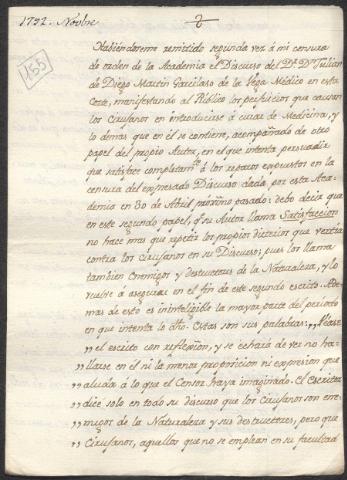 1792. Novbre.
155
Habiendoseme remitido segunda vez á mi censura
de orden de la Academia el Discurso del Dr. Dn. Julian
de Diego Martin Garcilaso de la Vega Médico en esta
Corte, manifestando al Público los perjuicios que causan
los Cirujanos en introducirse á curar de Medicina, y
lo demas que en él se contiene, acompañado de otro
papel del propio Autor, en el que intenta persuadir
que satisface completamte. á los reparos expuestos en la
censura del expresado Discurso dada por esta Aca-
demia en 30 de Abril proximo pasado: debo decir que
en este segundo papel, q. su Autor llama Satisfaccion
no hace mas que repetir los propios dicterios que vertia
contra los Cirujanos en su Discurso; pues los llama
tambien Enemigos y destructores de la Naturaleza, y lo
vuelve á asegurar en el fin de este segundo escrito. Ade-
mas de esto es ininteligible la mayor parte del periodo
en que intenta lo dho. Estas son sus palabras: „Leáse
„el escrito con reflexîon, y se echará de ver no ha-
„llarse en el ni la menor proposicion ni expresion que
„aluda á lo que el Censor haya imaginado. El Escritor
„dice solo en todo su discurso que los Cirujanos son ene-
„migos de la Naturaleza y sus destructores, pero que
„Cirujanos, aquellos que no se emplean en su facultad